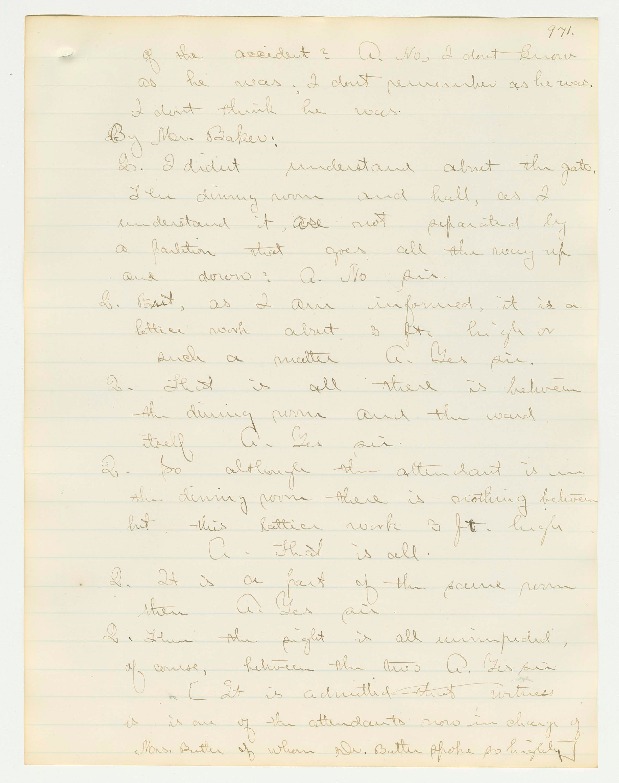 971.
of the accident? A. No, I dont know
as he was, I dont remember as he was.
I dont think he was.
By Mr. Baker:
Q. I didnt understand about the gate.
The dinning room and hall, as I
understand it, are not separated by
a partition that goes all the way up
and down? A. No sir.
Q. But, as I am informed, it is a
lattice work about 3 ft. high or
such a matter A. Yes sir.
Q. That is all there is between
the dinning room and the ward
itself A. Yes sir.
Q. So although the attendant is in
the dinning room there is nothing between
but this lattice work 3 ft. high
A. That is all.
Q. It is a part of the same room
then A. Yes sir
Q. Then the sight is all unimpeded,
of course, between the two A. Yes sir
[It is admitted that witness
is is one of the attendants now in charge of
Mrs. Butler of whom Dr. Butler spoke so highly]